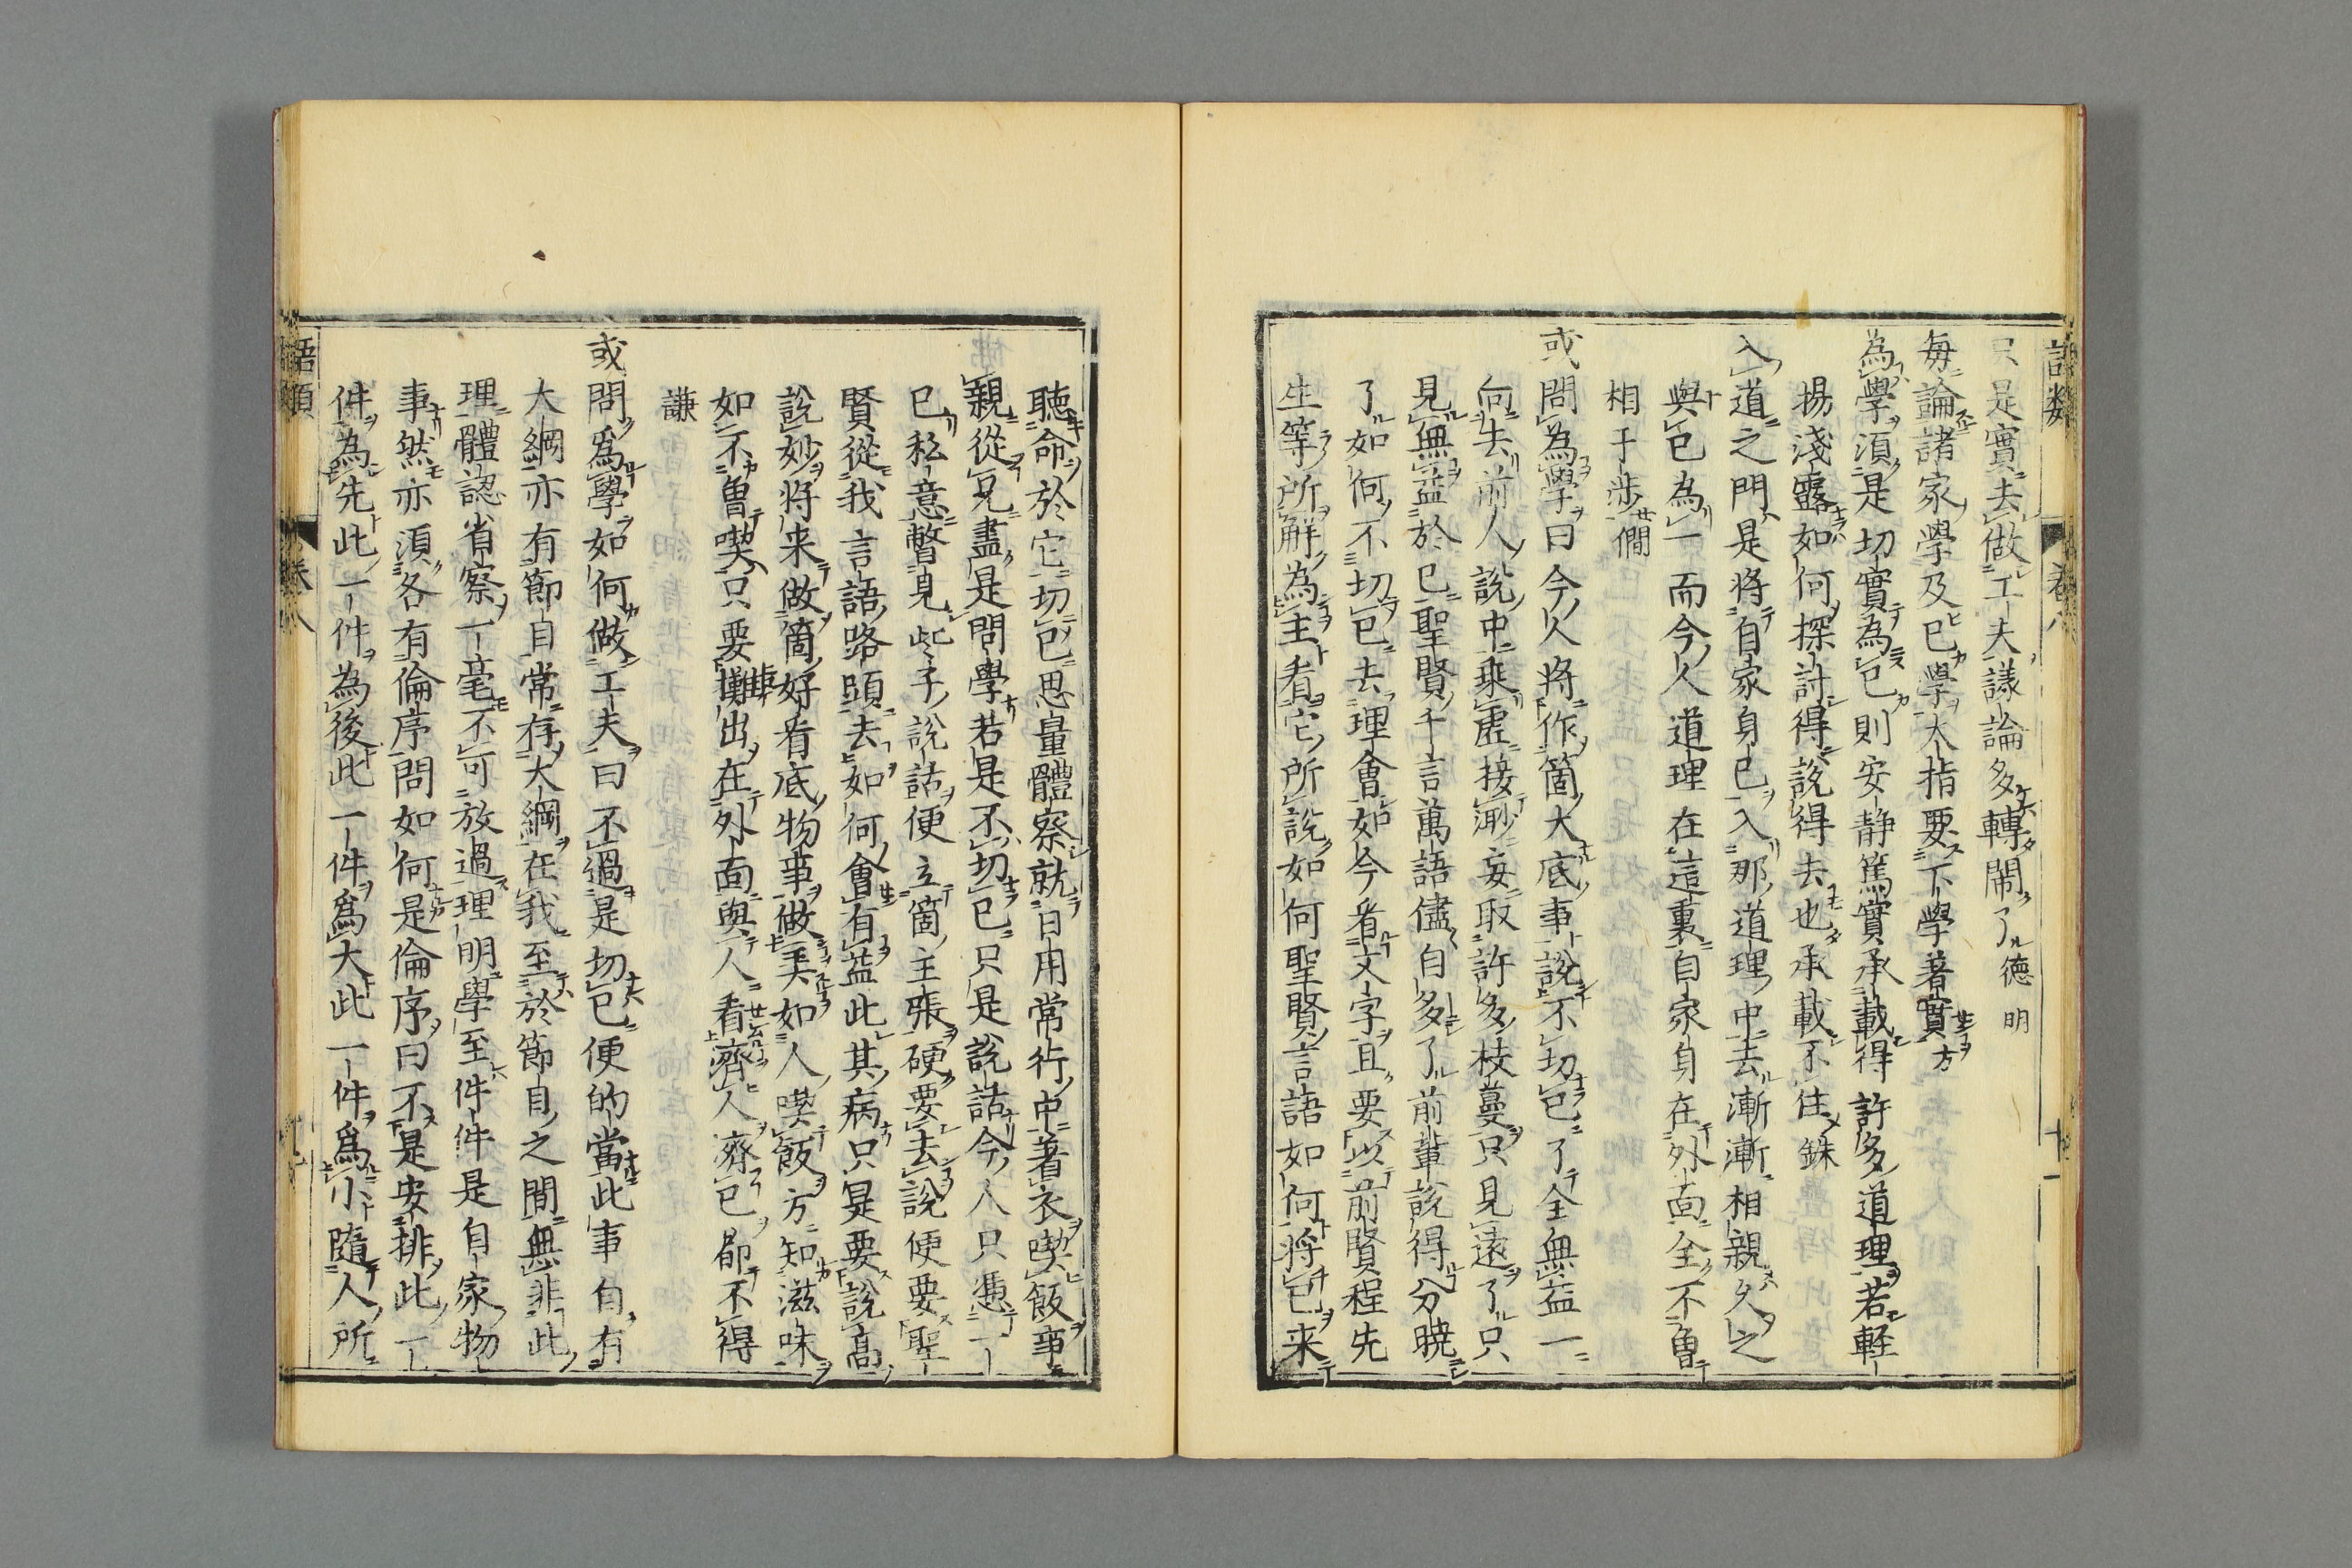 只是實去做工夫議論多轉鬧了德明
每論諸家學及己學大指要下學著實方
為學須是切實為己則安靜篤實承載得許多道理若輕
揚淺露如何探討得說得去也承載不住銖
入道之門是将自家身己入那道理中去漸漸相親久之
與己為一而今人道理在這裏自家身在外面全不曾
相干涉僩
或問為學曰今人将作箇大底事說不切己了全無益一
向去前人說中乘虛接渺妄取許多枝蔓只見遠了只
見無益於己聖賢千言萬語儘自多了前輩說得分曉
了如何不切己去理會如今看文字且要以前賢程先
生等所解為主看它所說如何聖賢言語如何将己来
聽命於它切己思量體察就日用常行中著衣喫飯事
親從兄盡是問學若是不切己只是說話今人只憑一
己私意瞥見些子說話便立箇主張硬要去說便要聖
賢從我言語路頭去如何會有益此其病只是要說高
說妙将来做箇好看底物事做美如人喫飯方知滋味
如不曾喫只要攤出在外面與人看濟人濟己都不得
謙
或問爲學如何做工夫曰不過是切己便的當此事自有
大綱亦有節目常存大綱在我至於節目之間無非此
理體認省察一毫不可放過理明學至件件是自家物
事然亦須各有倫序問如何是倫序曰不是安排此一
件為先此一件為後此一件爲大此一件爲小隨人所
語類 卷八